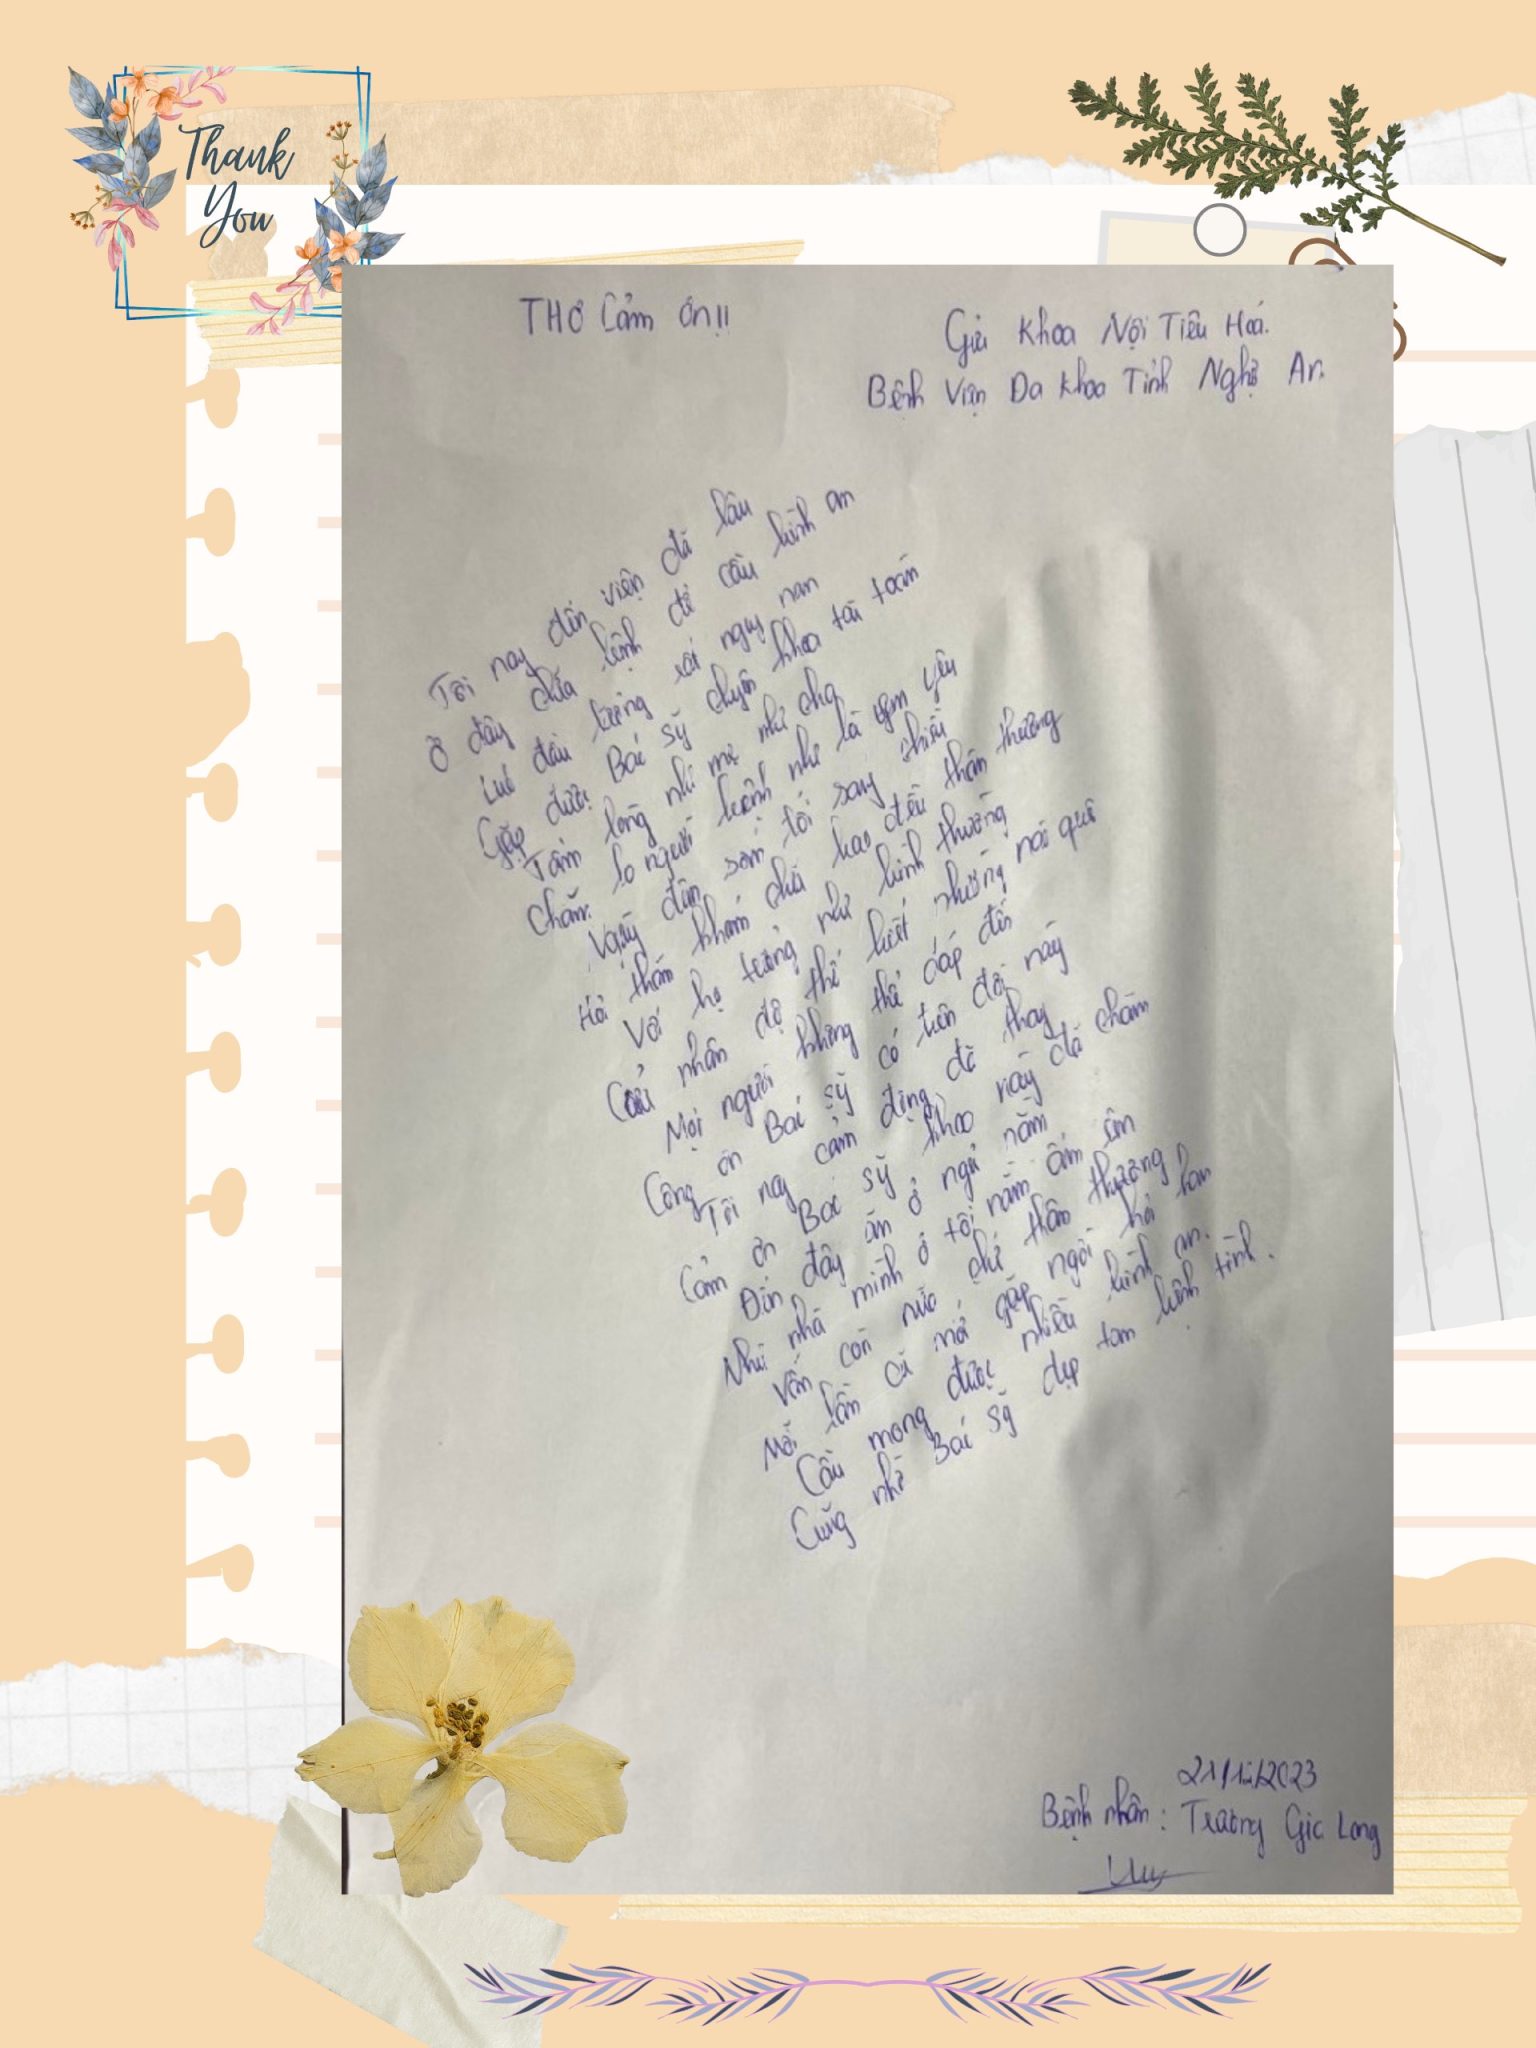 Thank
You
THƠ Cảm ơn!!
Gửi Khoa Nội Tiêu Hoá.
Bệnh Viện Đa Khoa Tỉnh Nghệ An.
Tôi nay đến viện đã lâu
Ở đây chữa bệnh để cầu bình an
Lúc đầu tưởng rất nguy nan
Gặp được Bác sỹ chuyên khoa tài toàn
Tấm lòng như mẹ như cha
Chăm lo người bệnh như là yêu
Ngày đêm sớm tối sang chiều
Hỏi thăm khám chữa bao điều thân thương
Với họ tưởng như bình thường
nhân độ thế biết nhường nào quê
Mọi người không thể đáp đền
Công ơn Bác sỹ có trên đời này
Tôi nay cảm động đã thay
Cảm ơn Bác sỹ khoa này đã chăm
Đến đây ăn ở ngủ nằm
Như nhà mình ở tôi nằm ấm êm
Vẫn còn nữa chứ thân thương
Mỗi lần cứ mới gặp người hỏi han
Cầu mong được nhiều bình an.
Cũng nhờ Bác sỹ dẹp tan bệnh tình.
21/12/2023
Bệnh nhân: Trương Gia Long